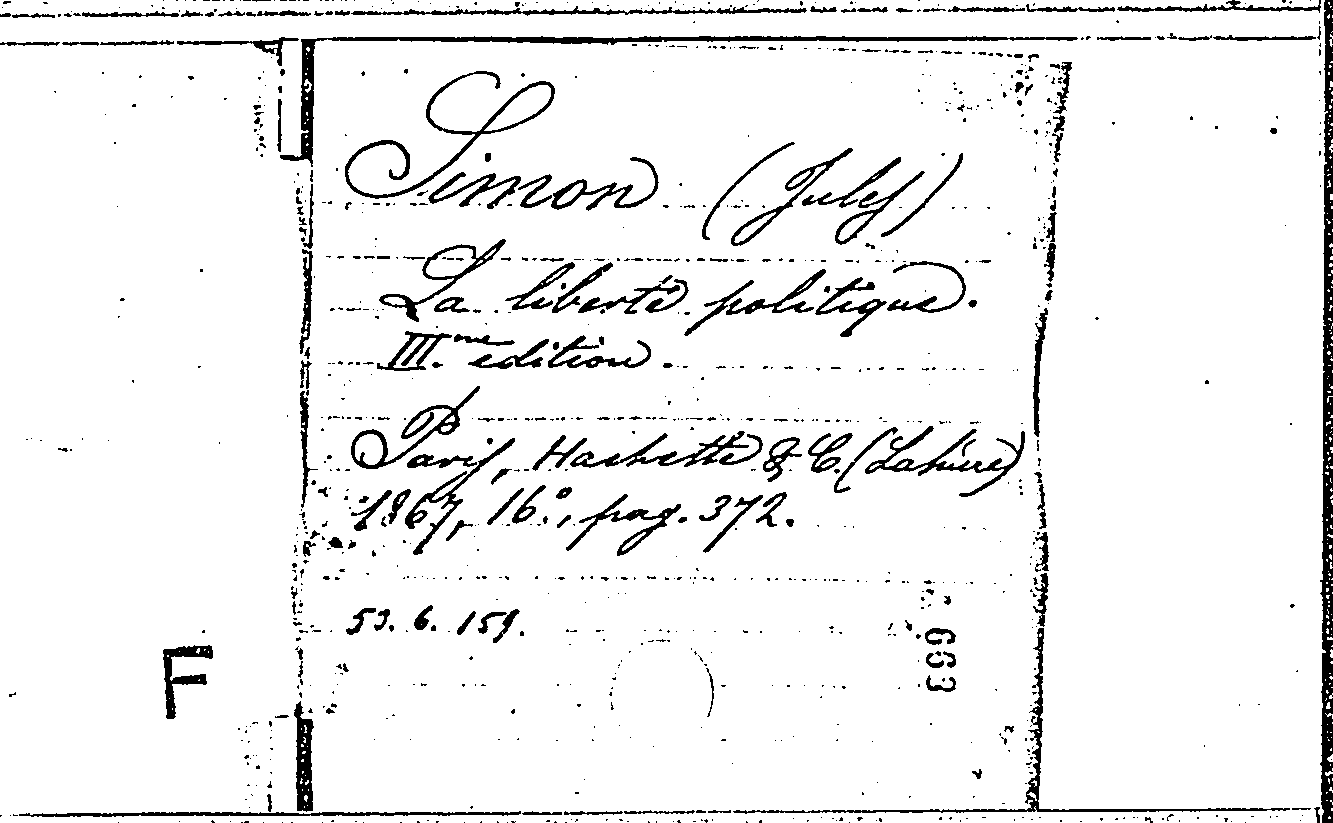 Simon (Jules)
La liberté politique.
III.me édition.
Paris, Hachette & C. (Lahure)
1867, 16.°, pag. 372.
53. 6. 159.
663
F